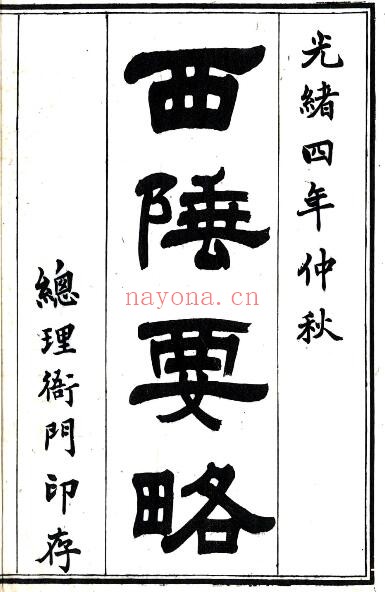 光緒四年仲秋
西陲要略
總理衙門印存
nayona.cn